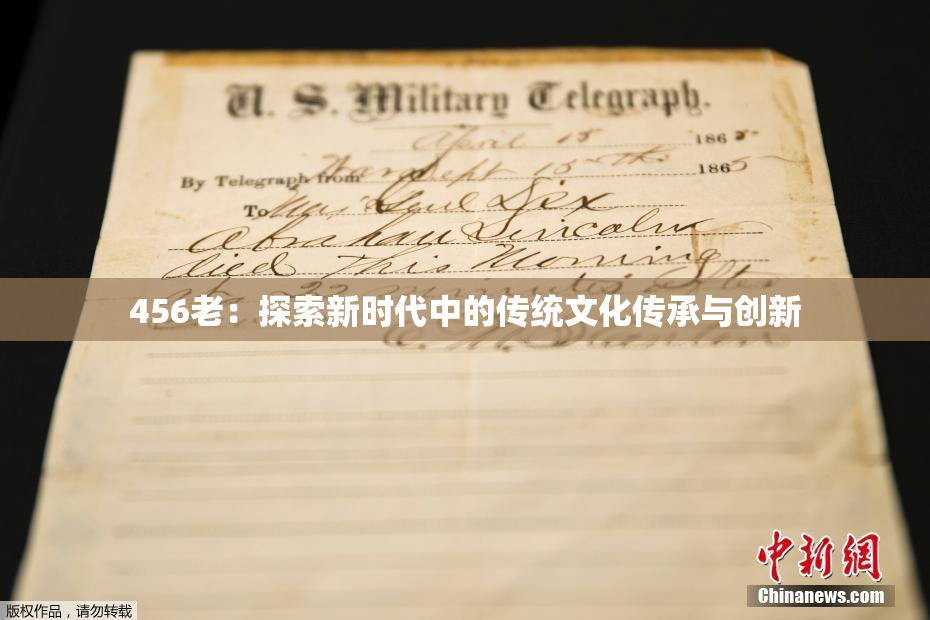 U. S. Military Telegraph.
April 15 1865
By Telegraph from War Dept 15th 1865
To Maj Genl Dix
Abraham Lincoln
died This Morning
at 22 minutes after
456老：探索新时代中的传统文化传承与创新
E. M. Stanton
中新網
Chinanews.com
版权作品，请勿转载